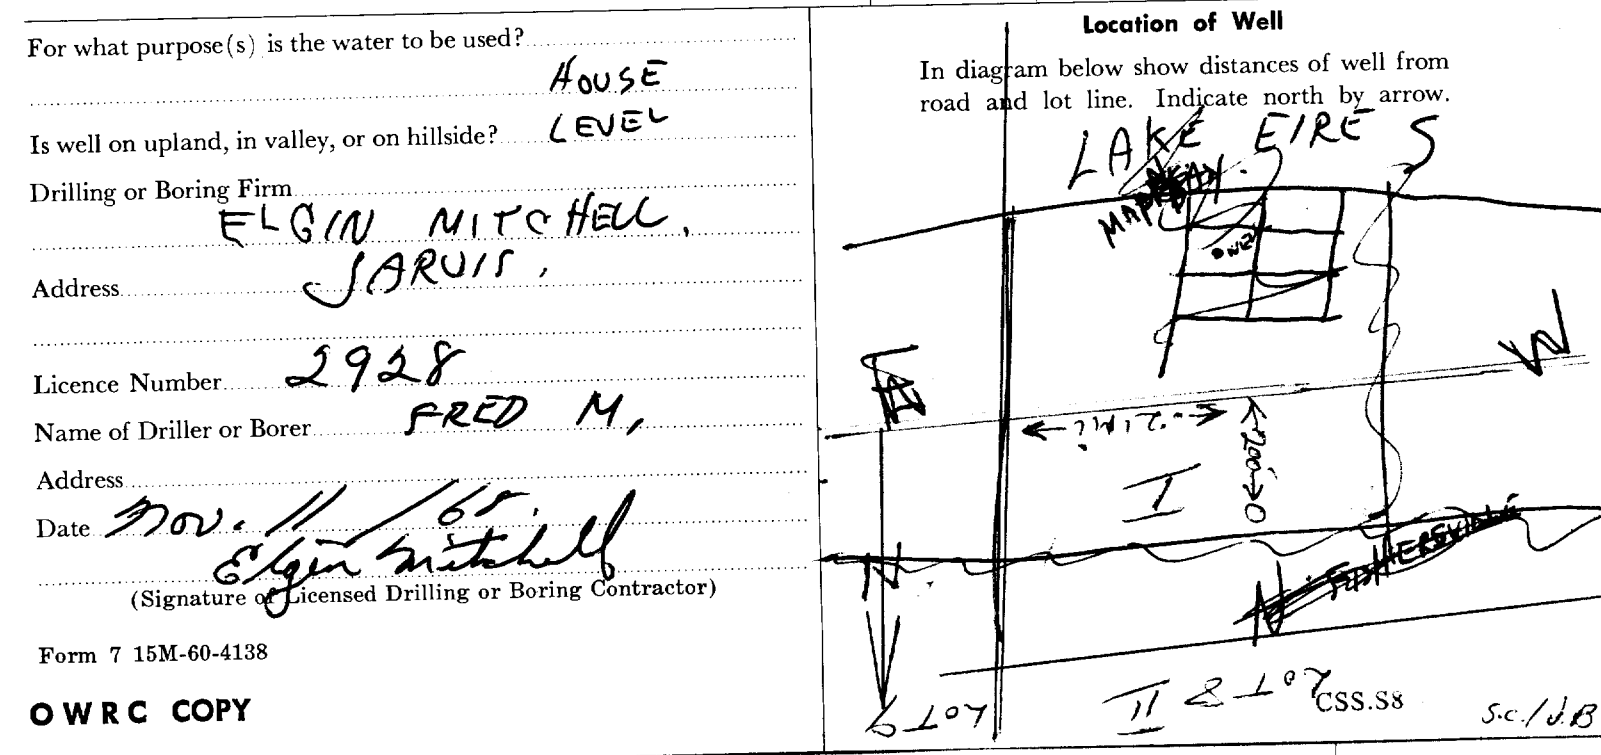 For what purpose(s) is the water to be used?
HOUSE
Is well on upland, in valley, or on hillside? LEVEL
Drilling or Boring Firm
ELGIN MITCHELL,
Address JARVIS,
Licence Number 2928
Name of Driller or Borer FRED M,
Address
Date Nov. 11/65.
Elgin Mitchell
(Signature of Licensed Drilling or Boring Contractor)
Form 7 15M-60-4138
OWRC COPY
Location of Well
In diagram below show distances of well from
road and lot line. Indicate north by arrow.
LAKE EIRE S
W
200'
I
N
N
LOT 9
LOT 8
II
CSS.S8
S.C./J.B